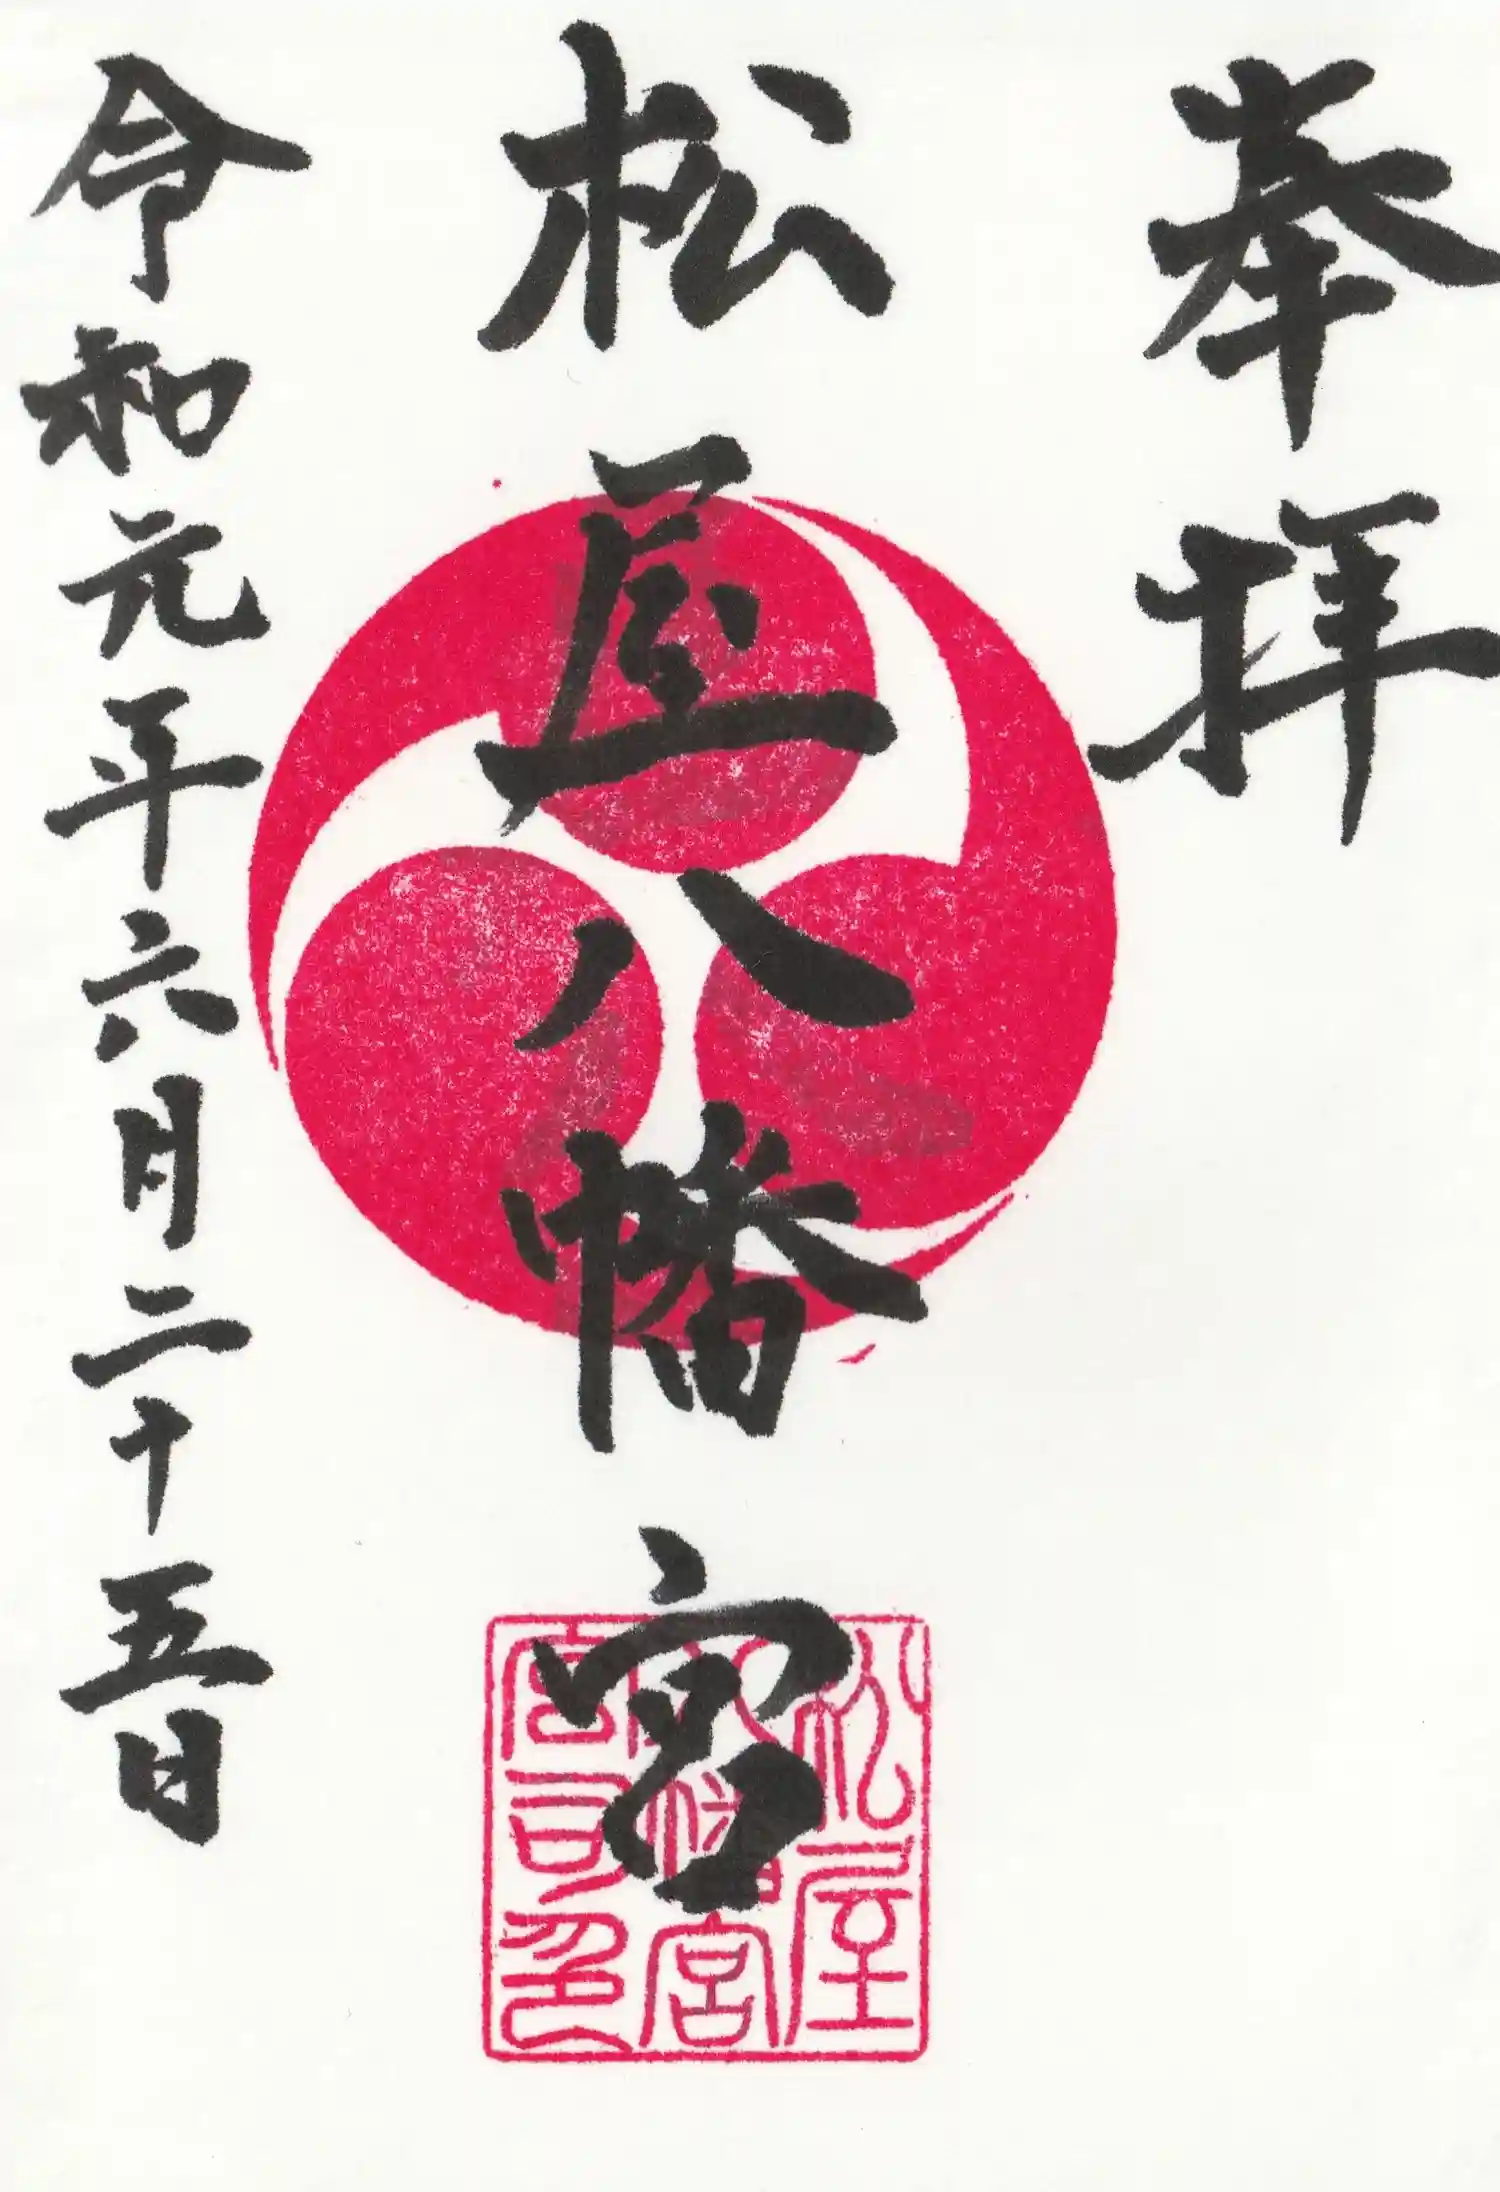 奉拝
松屋八幡宮
令和元年六月二十五日
松屋
八幡宮
宮司印